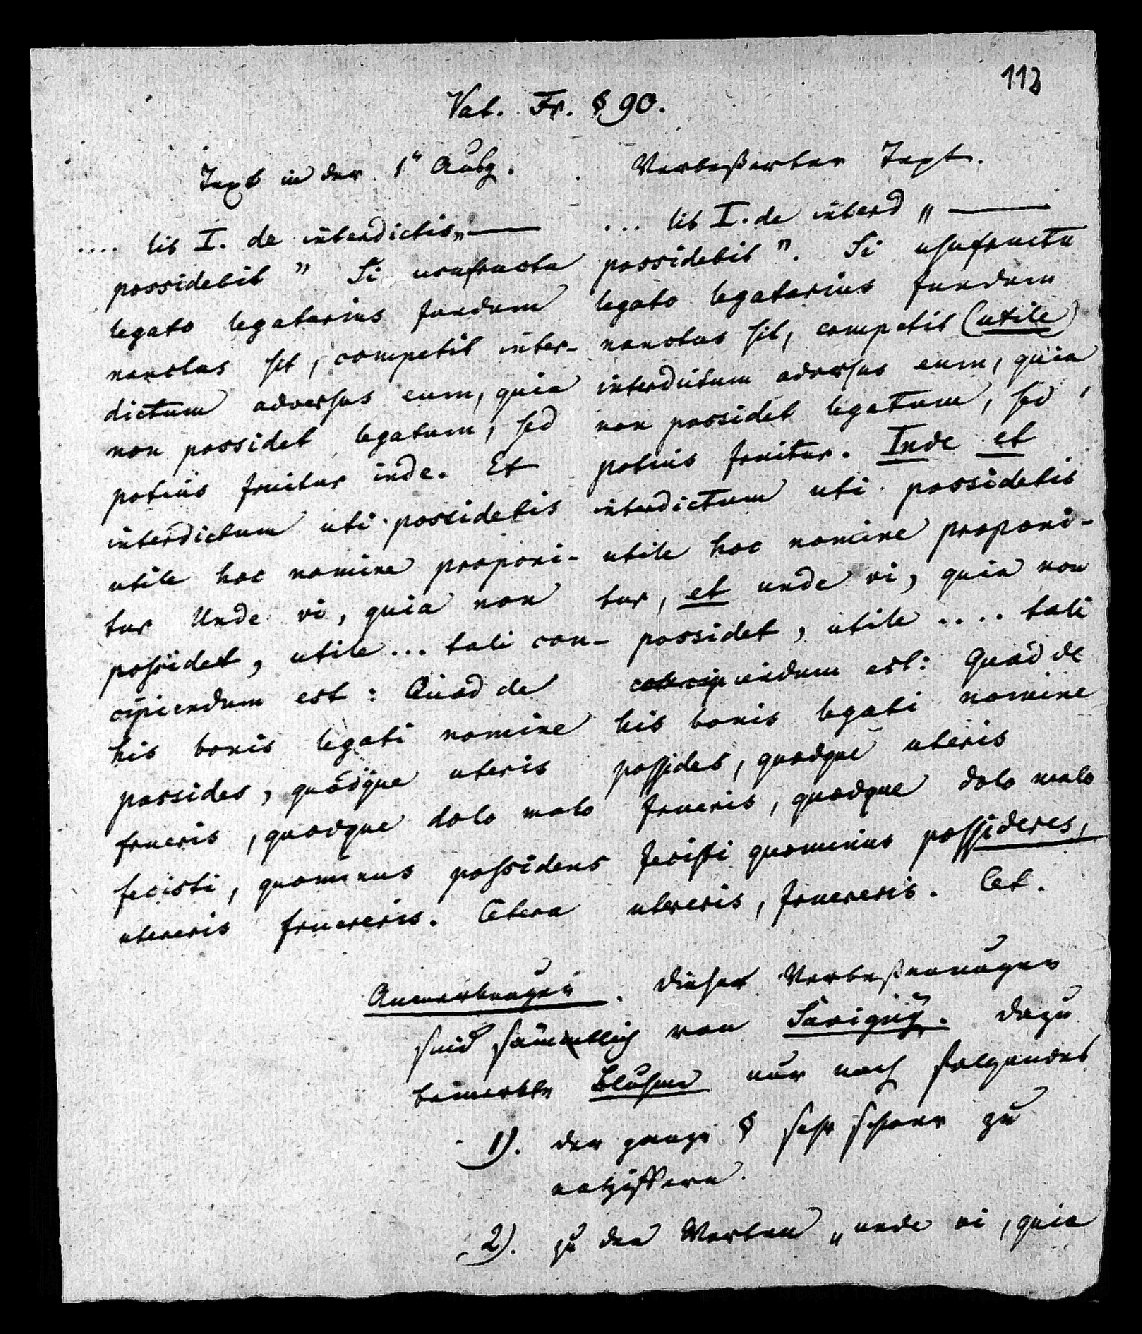 113
Vat. Fr. § 90.
Text in der 1n Ausg.
.... lib I. de interdictis „ ———
possidebit ” Si usufructu
legato legatarius fundum
nanctus sit, competit inter-
dictum adversus eum, quia
non possidet legatum, sed
potius fruitur inde. Et
interdictum uti possidetis
utile hoc nomine proponi-
tur Unde vi, quia non
possidet, utile... tali con-
cipiendum est: Quod de
his bonis legati nomine
possides, quodque uteris
frueris, quodque dolo malo
fecisti, quominus possidens
utereris fruereris. Cetera
Verbeßerter Text.
... lib I. de interd „ ———
possidebit ”. Si usufructu
legato legatarius fundum
nanctus sit, competit (utile)
interdictum adversus eum, quia
non possidet legatum, sed
potius fruitur. Inde et
interdictum uti possidetis
utile hoc nomine proponi-
tur, et unde vi, quia non
possidet, utile .... tali
concipiendum est: Quod de
his bonis legati nomine
possides, quodque uteris
frueris, quodque dolo malo
fecisti quominus possideres,
utereris, fruereris. Cet.
Anmerkungen. Dieser Verbeßerungen
sind sämmtlich von Savigny. Dazu
bemerkte Bluhme nur noch folgendes
1). der ganze § sehr schwer zu
entziffern.
2). zu den Worten „ unde vi, quia